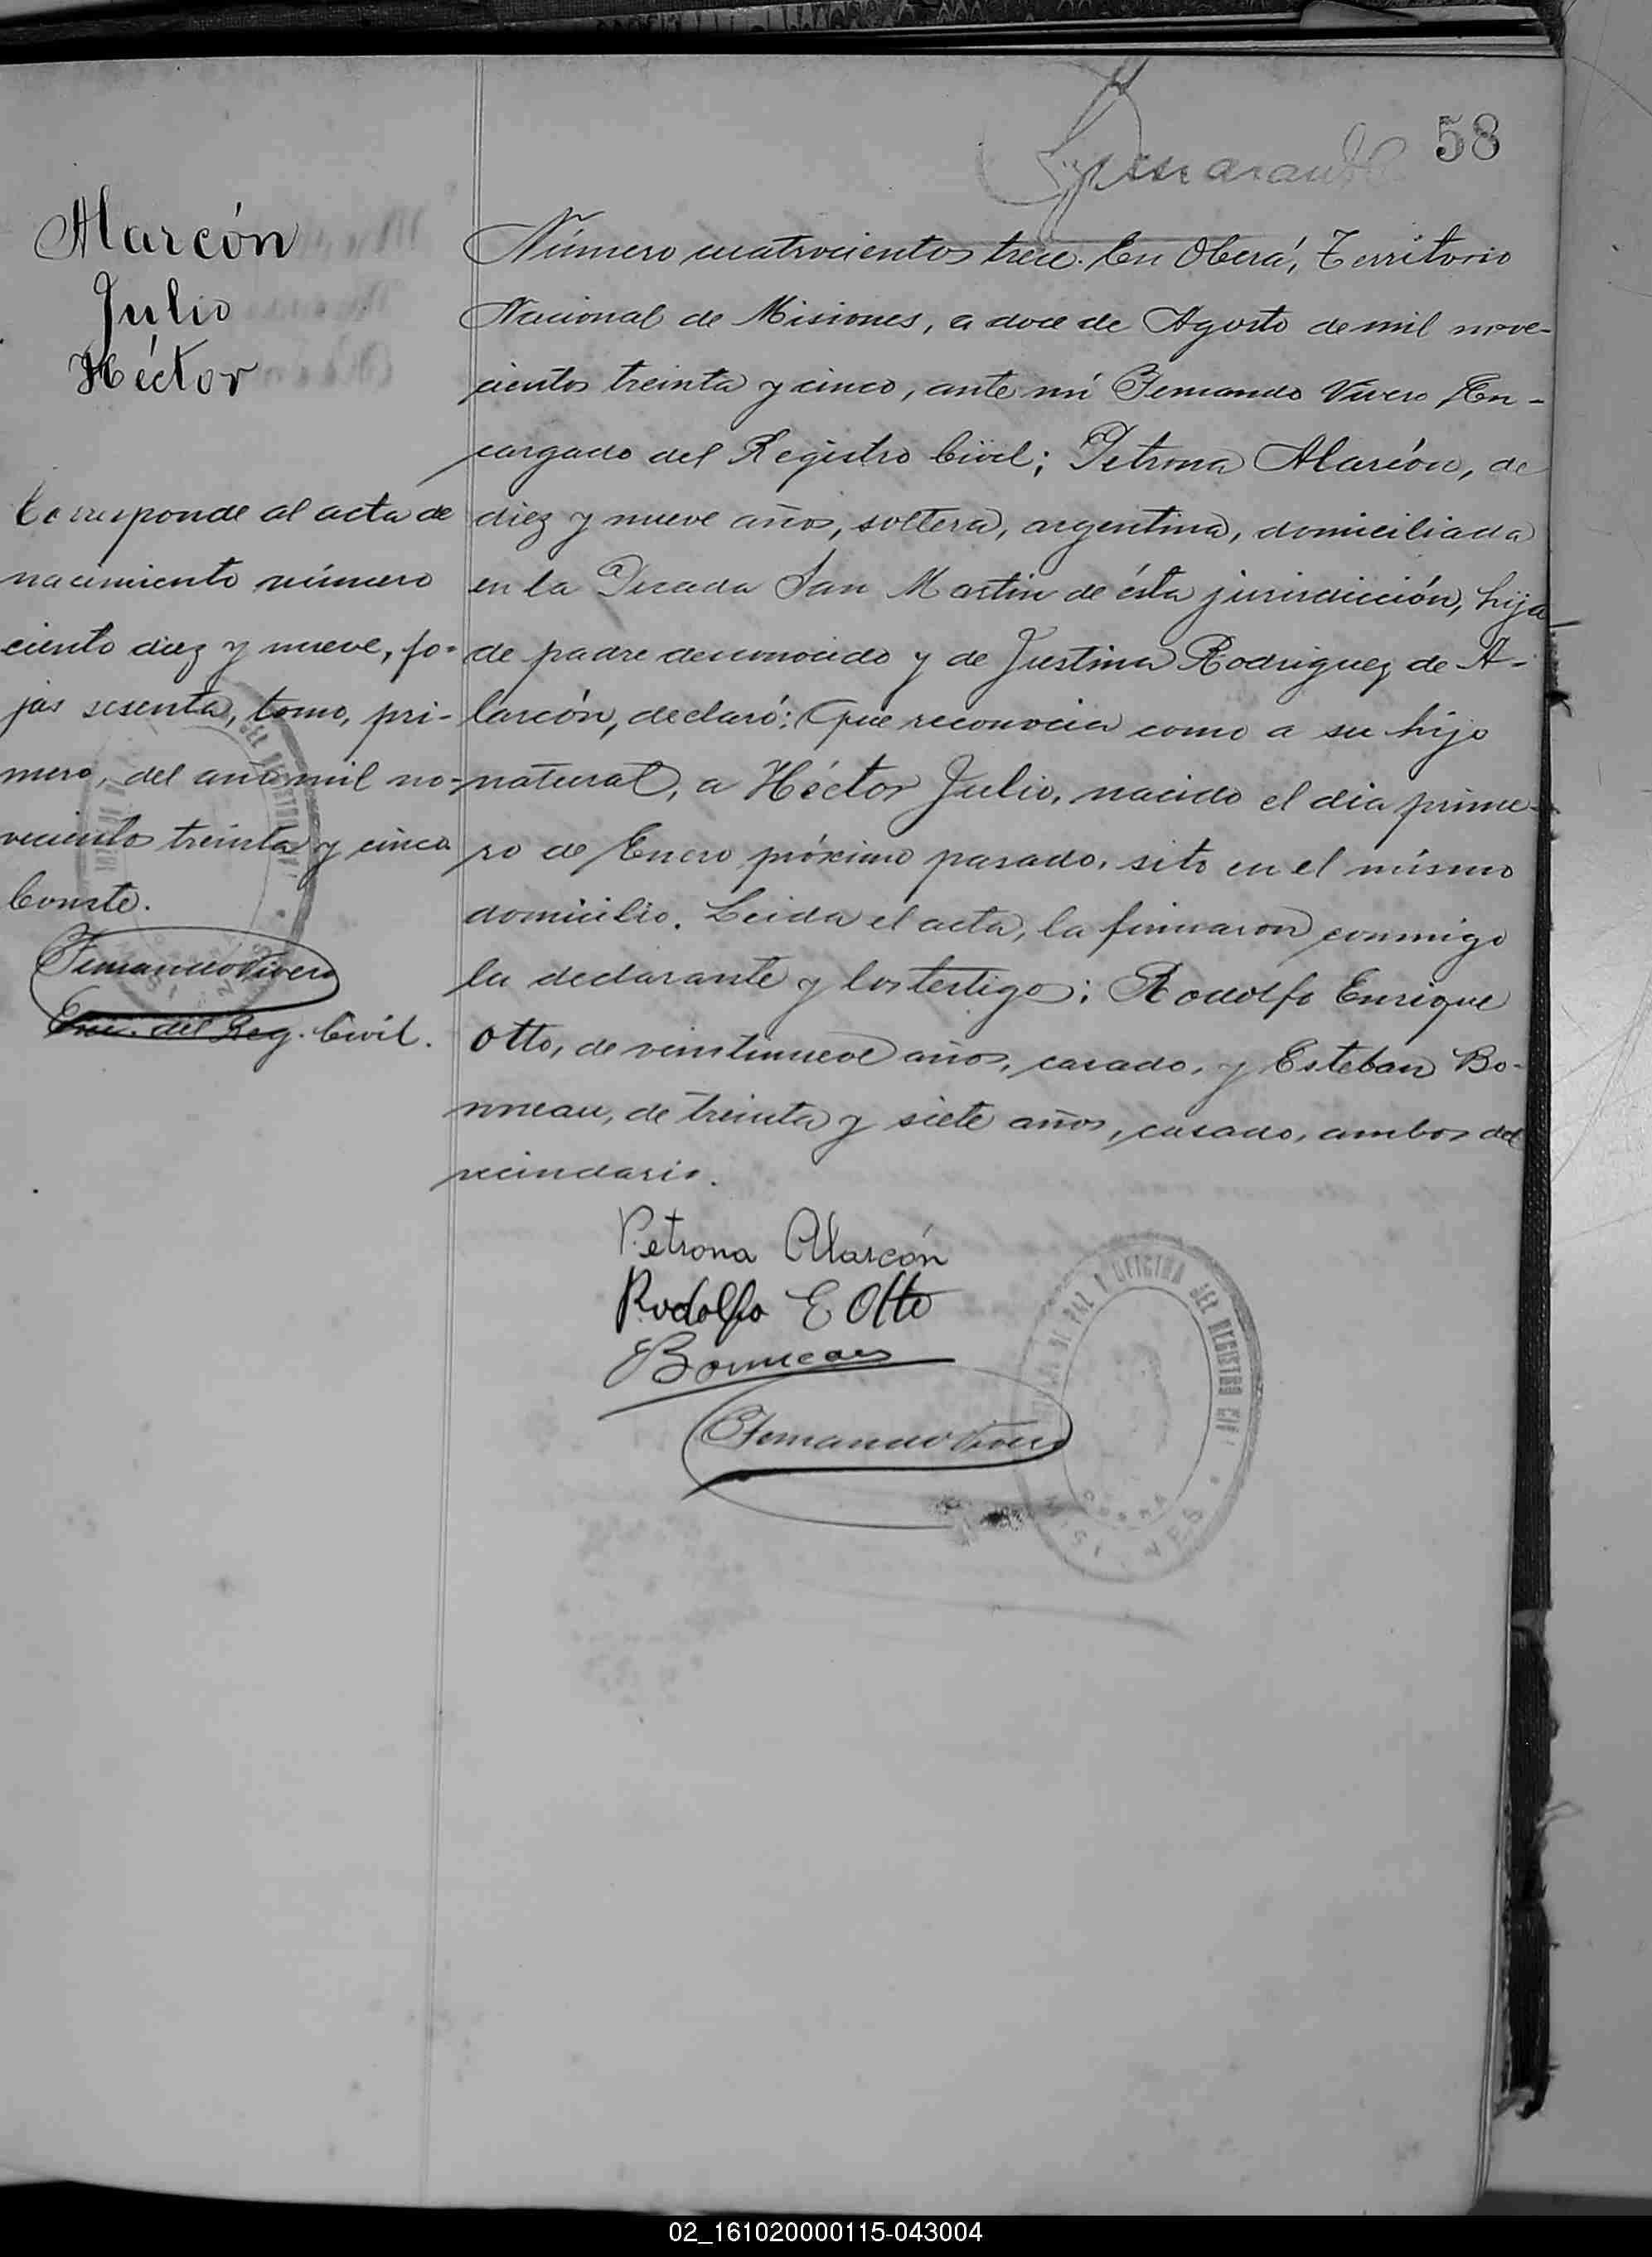 58
Alarcón
Julio
Héctor
Corresponde al acta de
nacimiento número
ciento diez y nueve, fo-
jas sesenta, tomo, pri-
mero, del año mil no-
vecientos treinta y cinco
Conste.
Fernando Vivero
Enc. del Reg. Civil.
Número cuatrocientos trece. En Oberá, Territorio
Nacional de Misiones, a doce de Agosto de mil nove-
cientos treinta y cinco, ante mí Fernando Vivero En-
cargado del Registro Civil; Petrona Alarcón, de
diez y nueve años, soltera, argentina, domiciliada
en la Picada San Martin de ésta jurisdicción, hija
de padre desconocido y de Justina Rodriguez de A-
larcón, declaró: Que reconocia como a su hijo
natural, a Héctor Julio, nacido el dia prime-
ro de Enero próximo pasado, sito en el mismo
domicilio. Leida el acta, la firmaron conmigo
la declarante y los testigos: Rodolfo Enrique
Otto, de veintinueve años, casado, y Esteban Bo-
nneau, de treinta y siete años, casado, ambos del
vecindario.
Petrona Alarcón
Rodolfo E Otto
Bonneau
Fernando Vivero
DE PAZ Y OFICINA DEL REGISTRO CIVIL
MISIONES
02_161020000115-043004